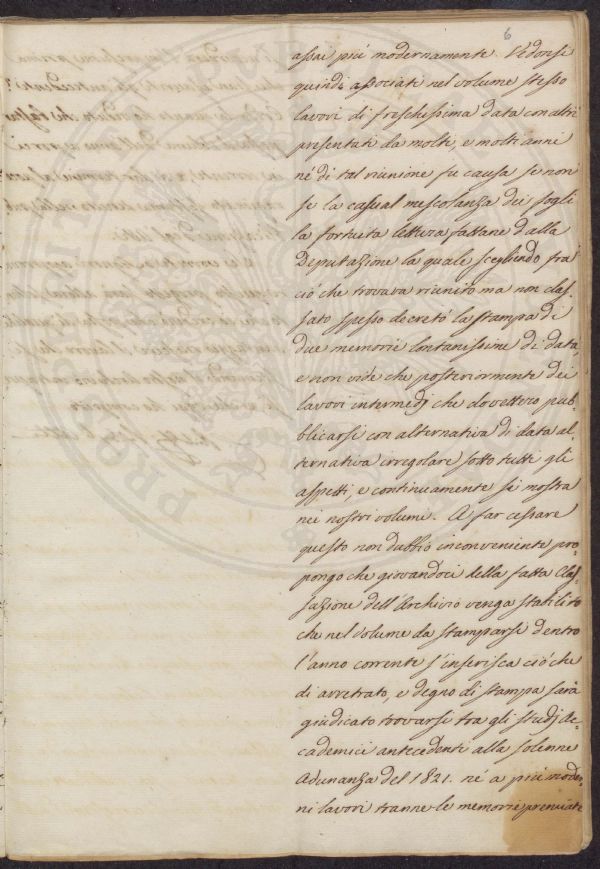 6
assai piú modernamente. Vedonsi
quindi associati nel volume stesso
lavori di freschissima data con altri
presentati da molti, e molti anni
né di tal riunione fu causa se non
se la casual mescolanza dei fogli
la fortuita lettura fattane dalla
Deputazione la quale scegliendo fra
ció che trovava riunito ma non clas-
sato spesso decretó la stampa di
due memorie lontanissime di data,
e non vide che posteriormente dei
lavori intermedj che dovettero pub-
blicarsi con alternativa di data al-
ternativa irregolare sotto tutti gli
aspetti, e continuamente si mostra
nei nostri volumi. A far cessare
questo non dubbio inconveniente pro-
pongo che giovandoci della fatta Clas-
sazione dell'Archivio venga stabilito
che nel Volume da stamparsi dentro
l'anno corrente s'inserisca ció che
di arretrato, e degno di stampa sarà
giudicato trovarsi tra gli studj Ac-
cademici antecedenti alla solenne
Adunanza del 1821. né a piú moder-
ni lavori tranne le memorie premiate